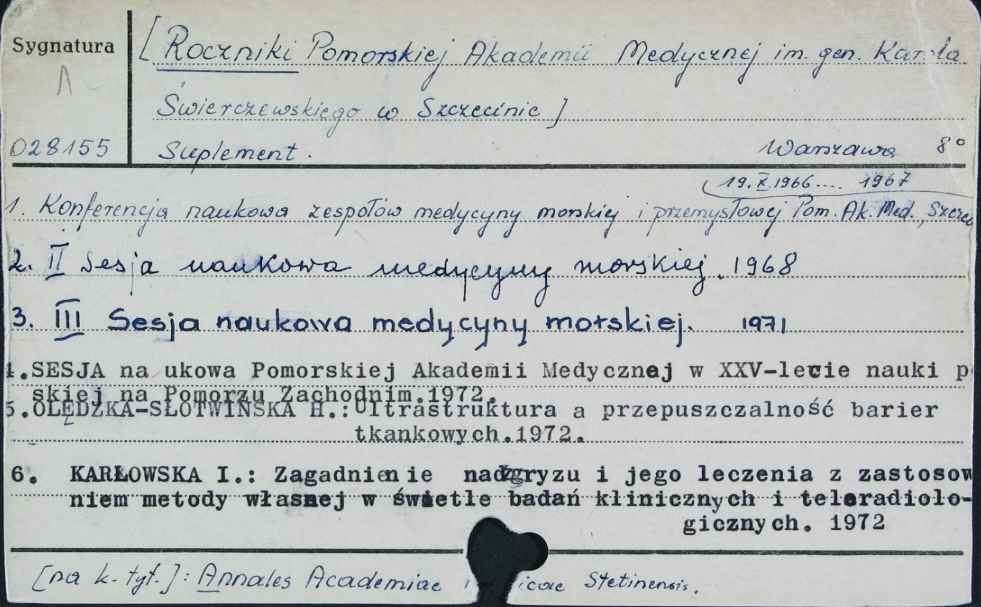 Sygnatura
[Roczniki Pomorskiej Akademii Medycznej im. gen. Karola
Świerczewskiego w Szczecinie]
028155
Suplement.
Warszawa 8°
19.X.1966.... 1967
1. Konferencja naukowa zespołów medycyny morskiej i przemysłowej Pom. Ak. Med.,
2. II Sesja naukowa medycyny morskiej. 1968
3. III Sesja naukowa medycyny morskiej. 1971
4.SESJA na ukowa Pomorskiej Akademii Medycznej w XXV-lecie nauki p
skiej na Pomorzu Zachodnim.1972.
5.OLĘDZKA-SŁOTWIŃSKA H.:Ultrastruktura a przepuszczalność barier
tkankowych.1972.
6. KARŁOWSKA I.: Zagadnienie nadzgryzu i jego leczenia z zastosow
niem metody własnej w świetle badań klinicznych i teleradiolo-
gicznych. 1972
[na k. tyt.]: Annales Academiae icae Stetinensis.